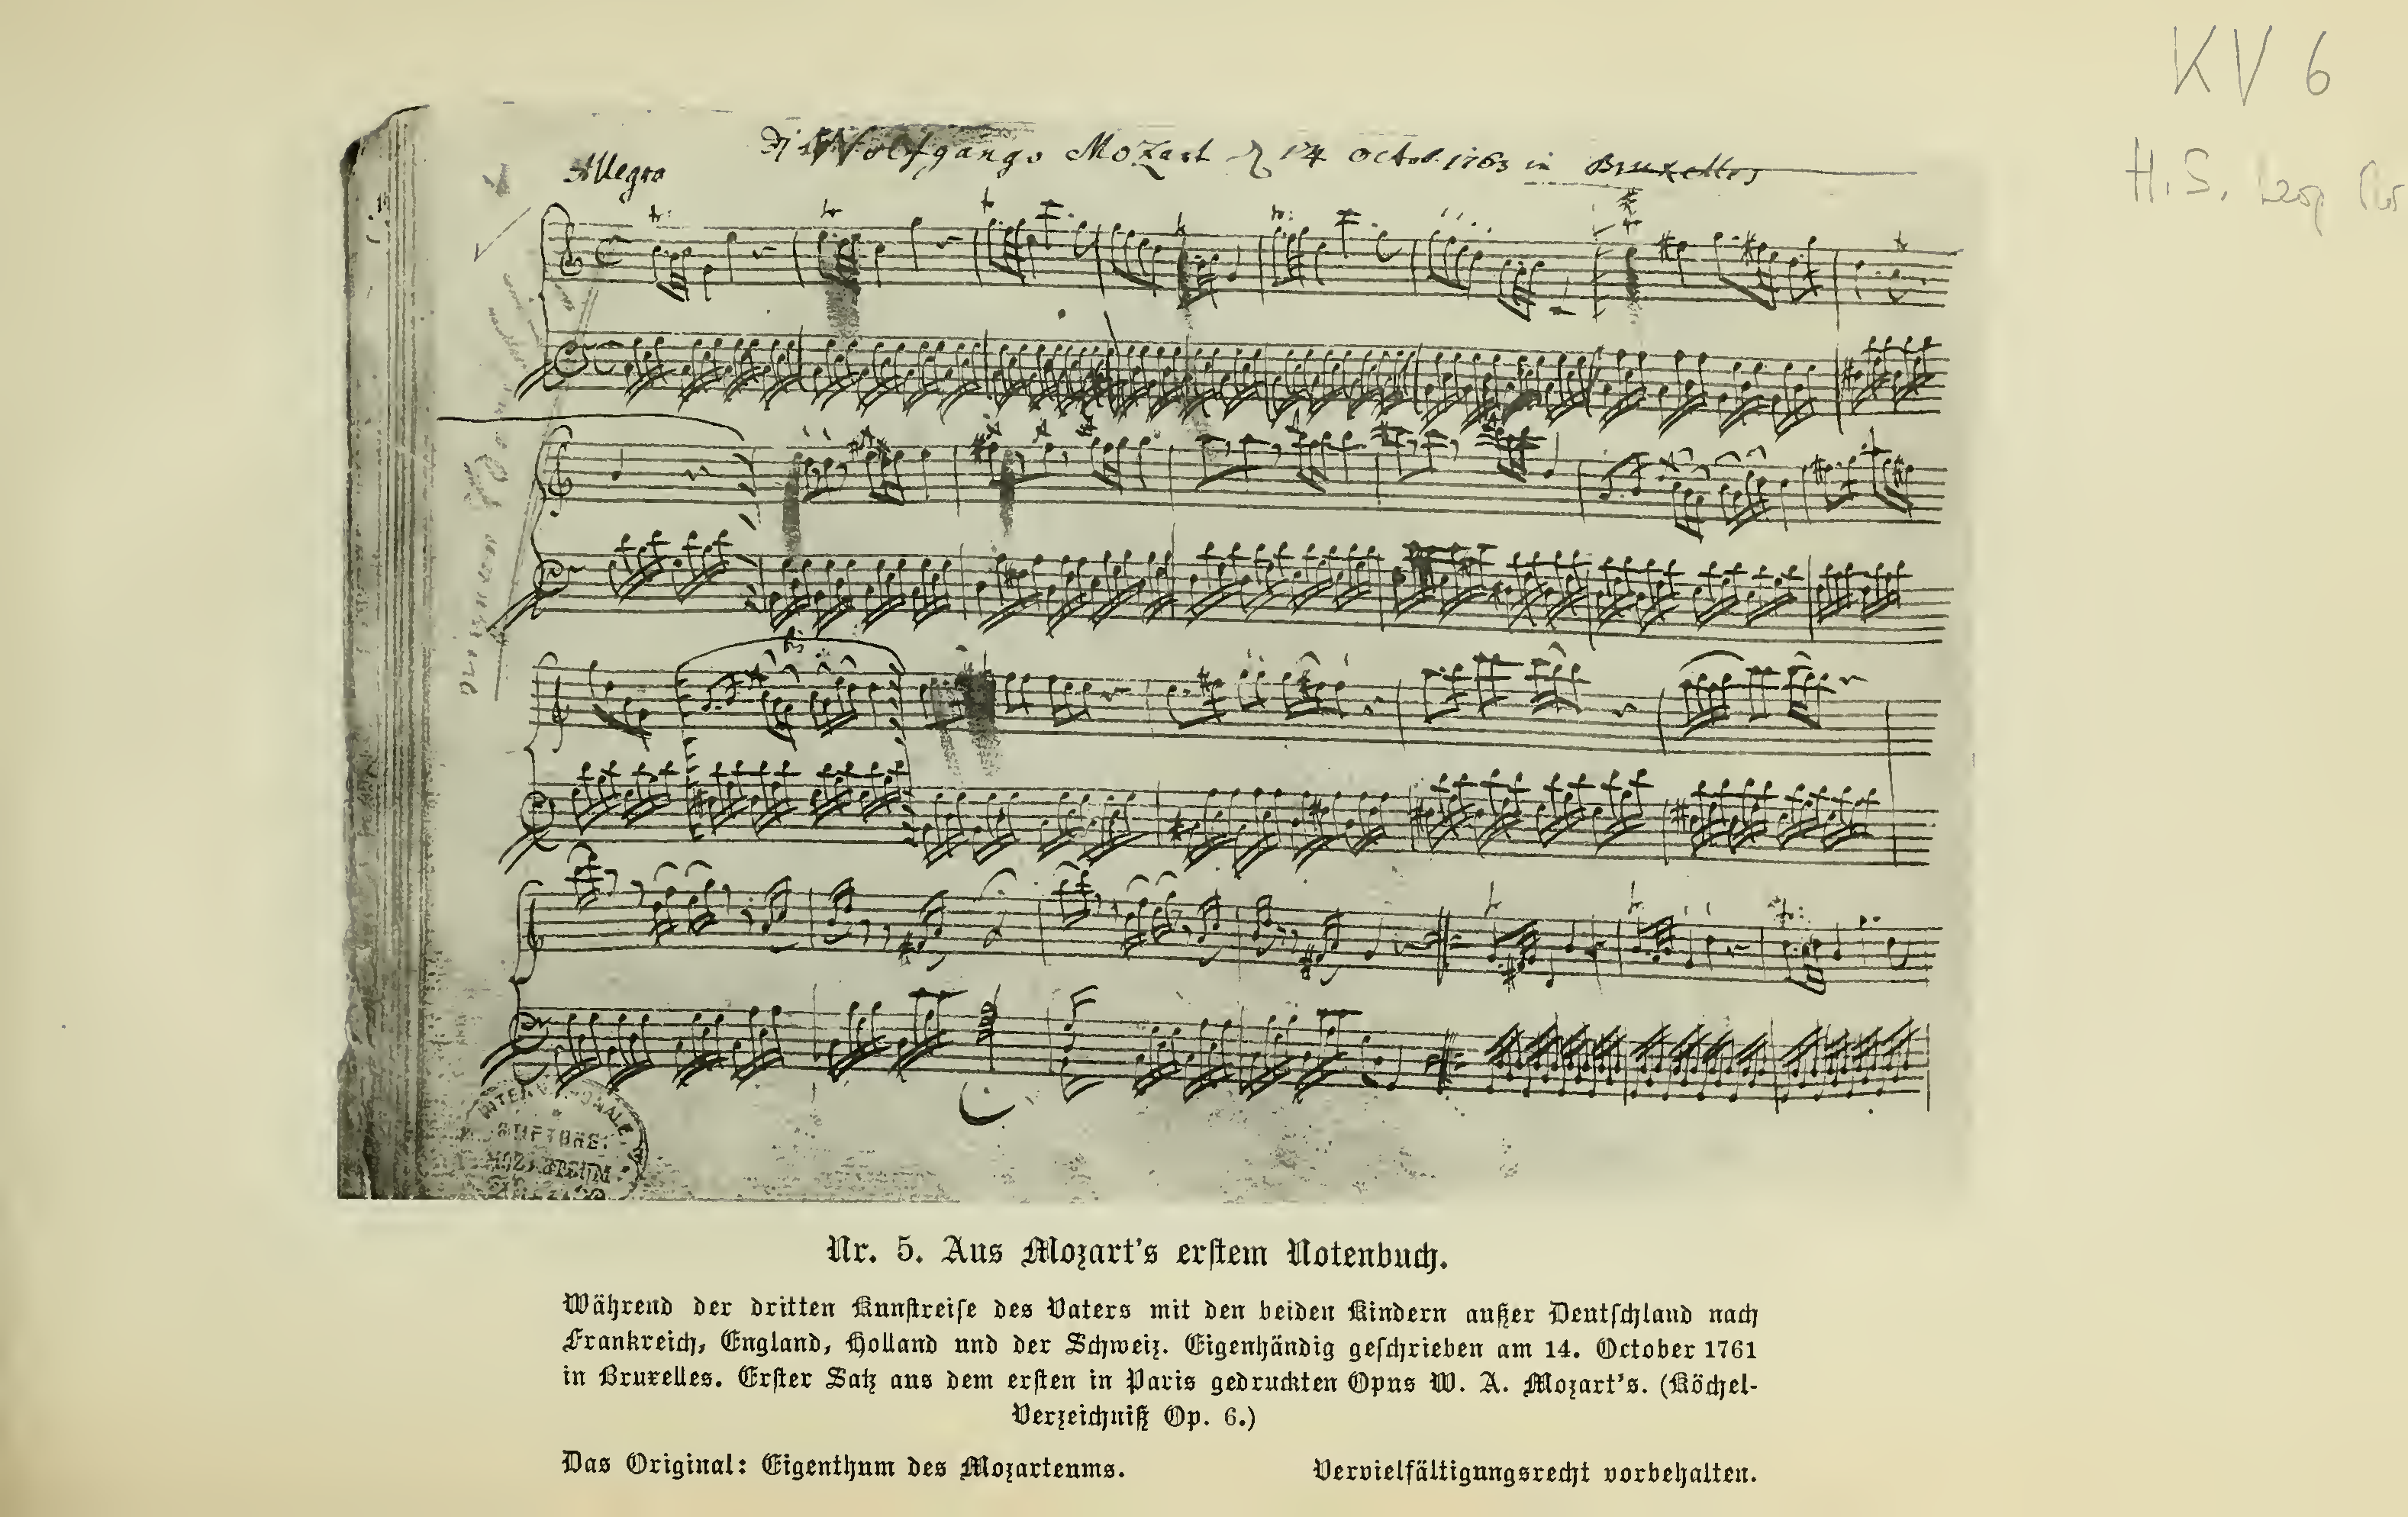 KV 6
H. S.
Wolfgango Mozart 14 octob. 1763 in Bruxelles
Allegro
Nr. 5. Aus Mozart's erſtem Notenbuch.
Während der dritten Kunſtreiſe des Vaters mit den beiden Kindern außer Deutſchland nach
Frankreich, England, Holland und der Schweiz. Eigenhändig geſchrieben am 14. October 1761
in Bruxelles. Erſter Satz aus dem erſten in Paris gedruckten Opus W. A. Mozart's. (Köchel-
Verzeichniß Op. 6.)
Das Original: Eigenthum des Mozarteums.
Vervielfältigungsrecht vorbehalten.